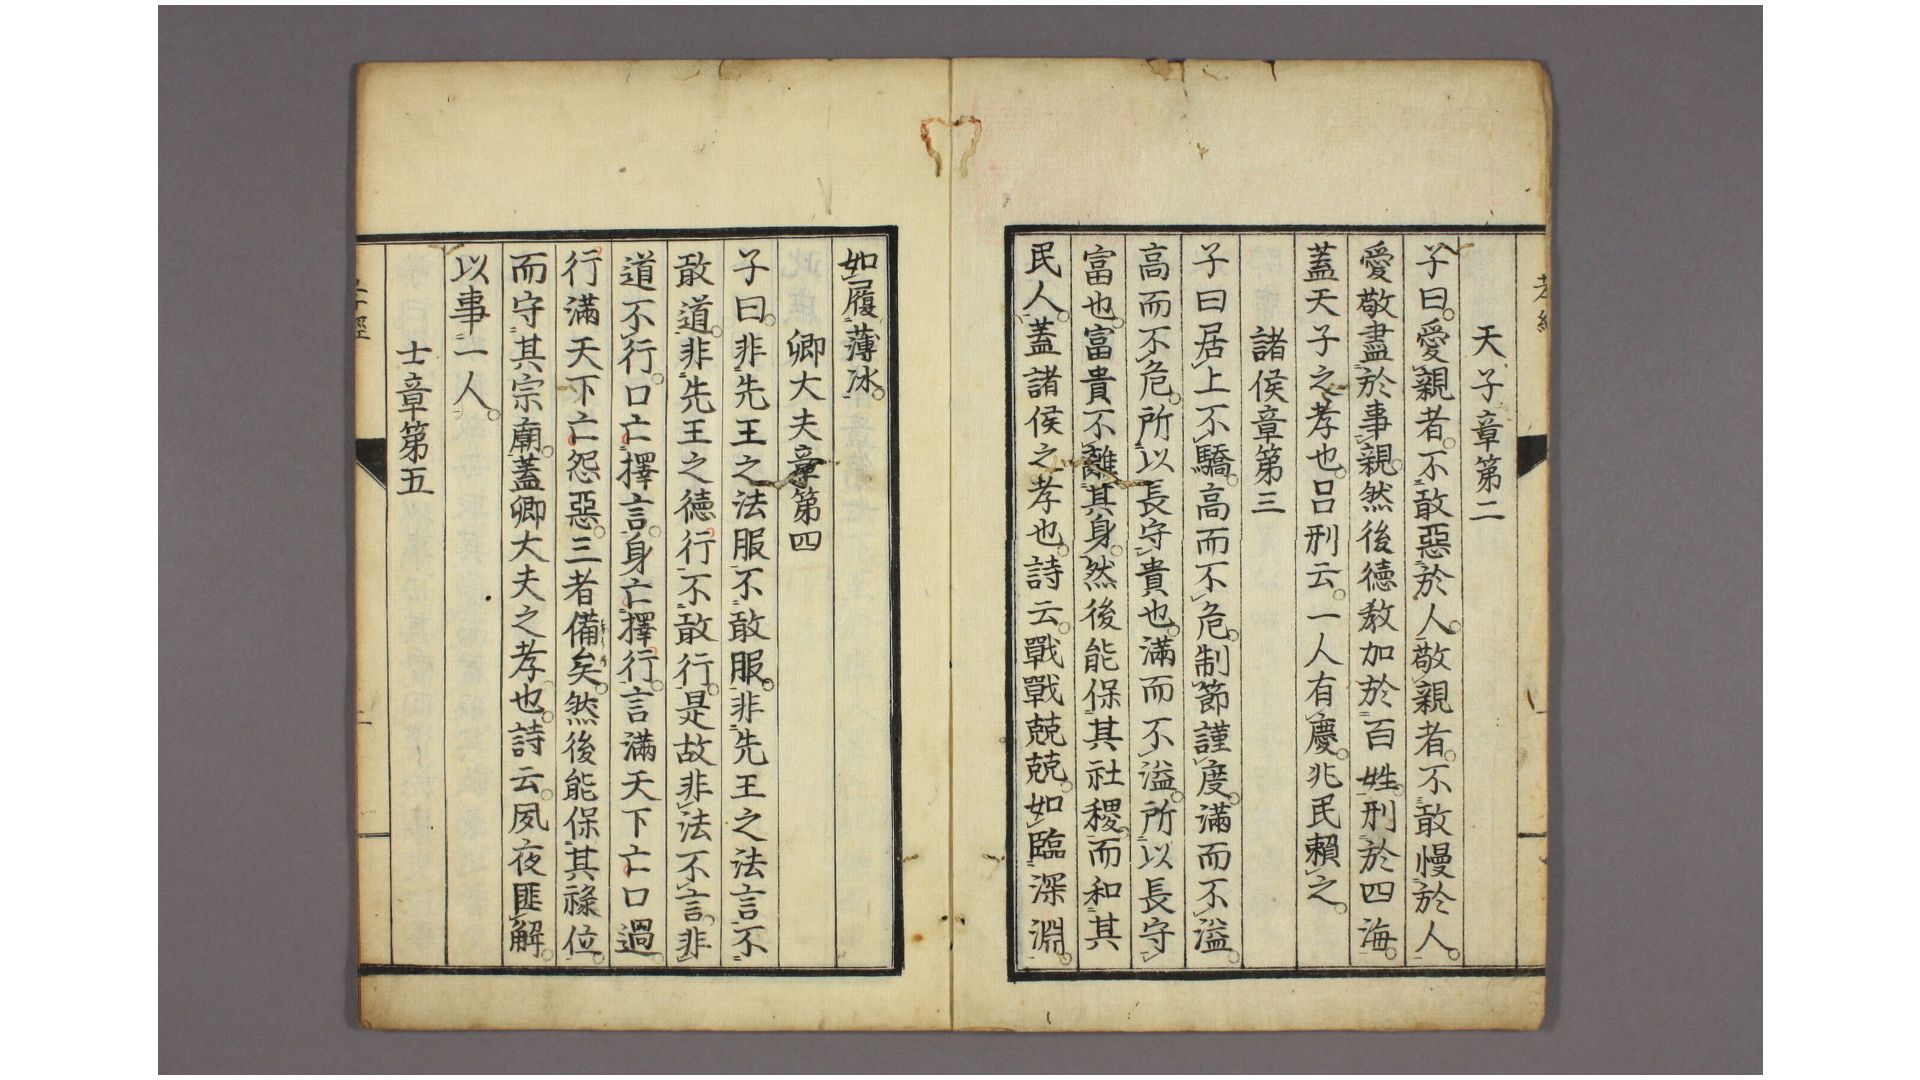 天子章第二
子曰愛親者不敢惡於人敬親者不敢慢於人
愛敬盡於事親然後徳教加於百姓刑於四海
蓋天子之孝也呂刑云一人有慶兆民賴之
諸侯章第三
子曰居上不驕高而不危制節謹度滿而不溢
高而不危所以長守貴也滿而不溢所以長守
富也富貴不離其身然後能保其社稷而和其
民人蓋諸侯之孝也詩云戰戰兢兢如臨深淵
如履薄冰
卿大夫章第四
子曰非先王之法服不敢服非先王之法言不
敢道非先王之徳行不敢行是故非法不言非
道不行口亡擇言身亡擇行言滿天下亡口過
行滿天下亡怨惡三者備矣然後能保其祿位
而守其宗廟蓋卿大夫之孝也詩云夙夜匪解
以事一人
士章第五